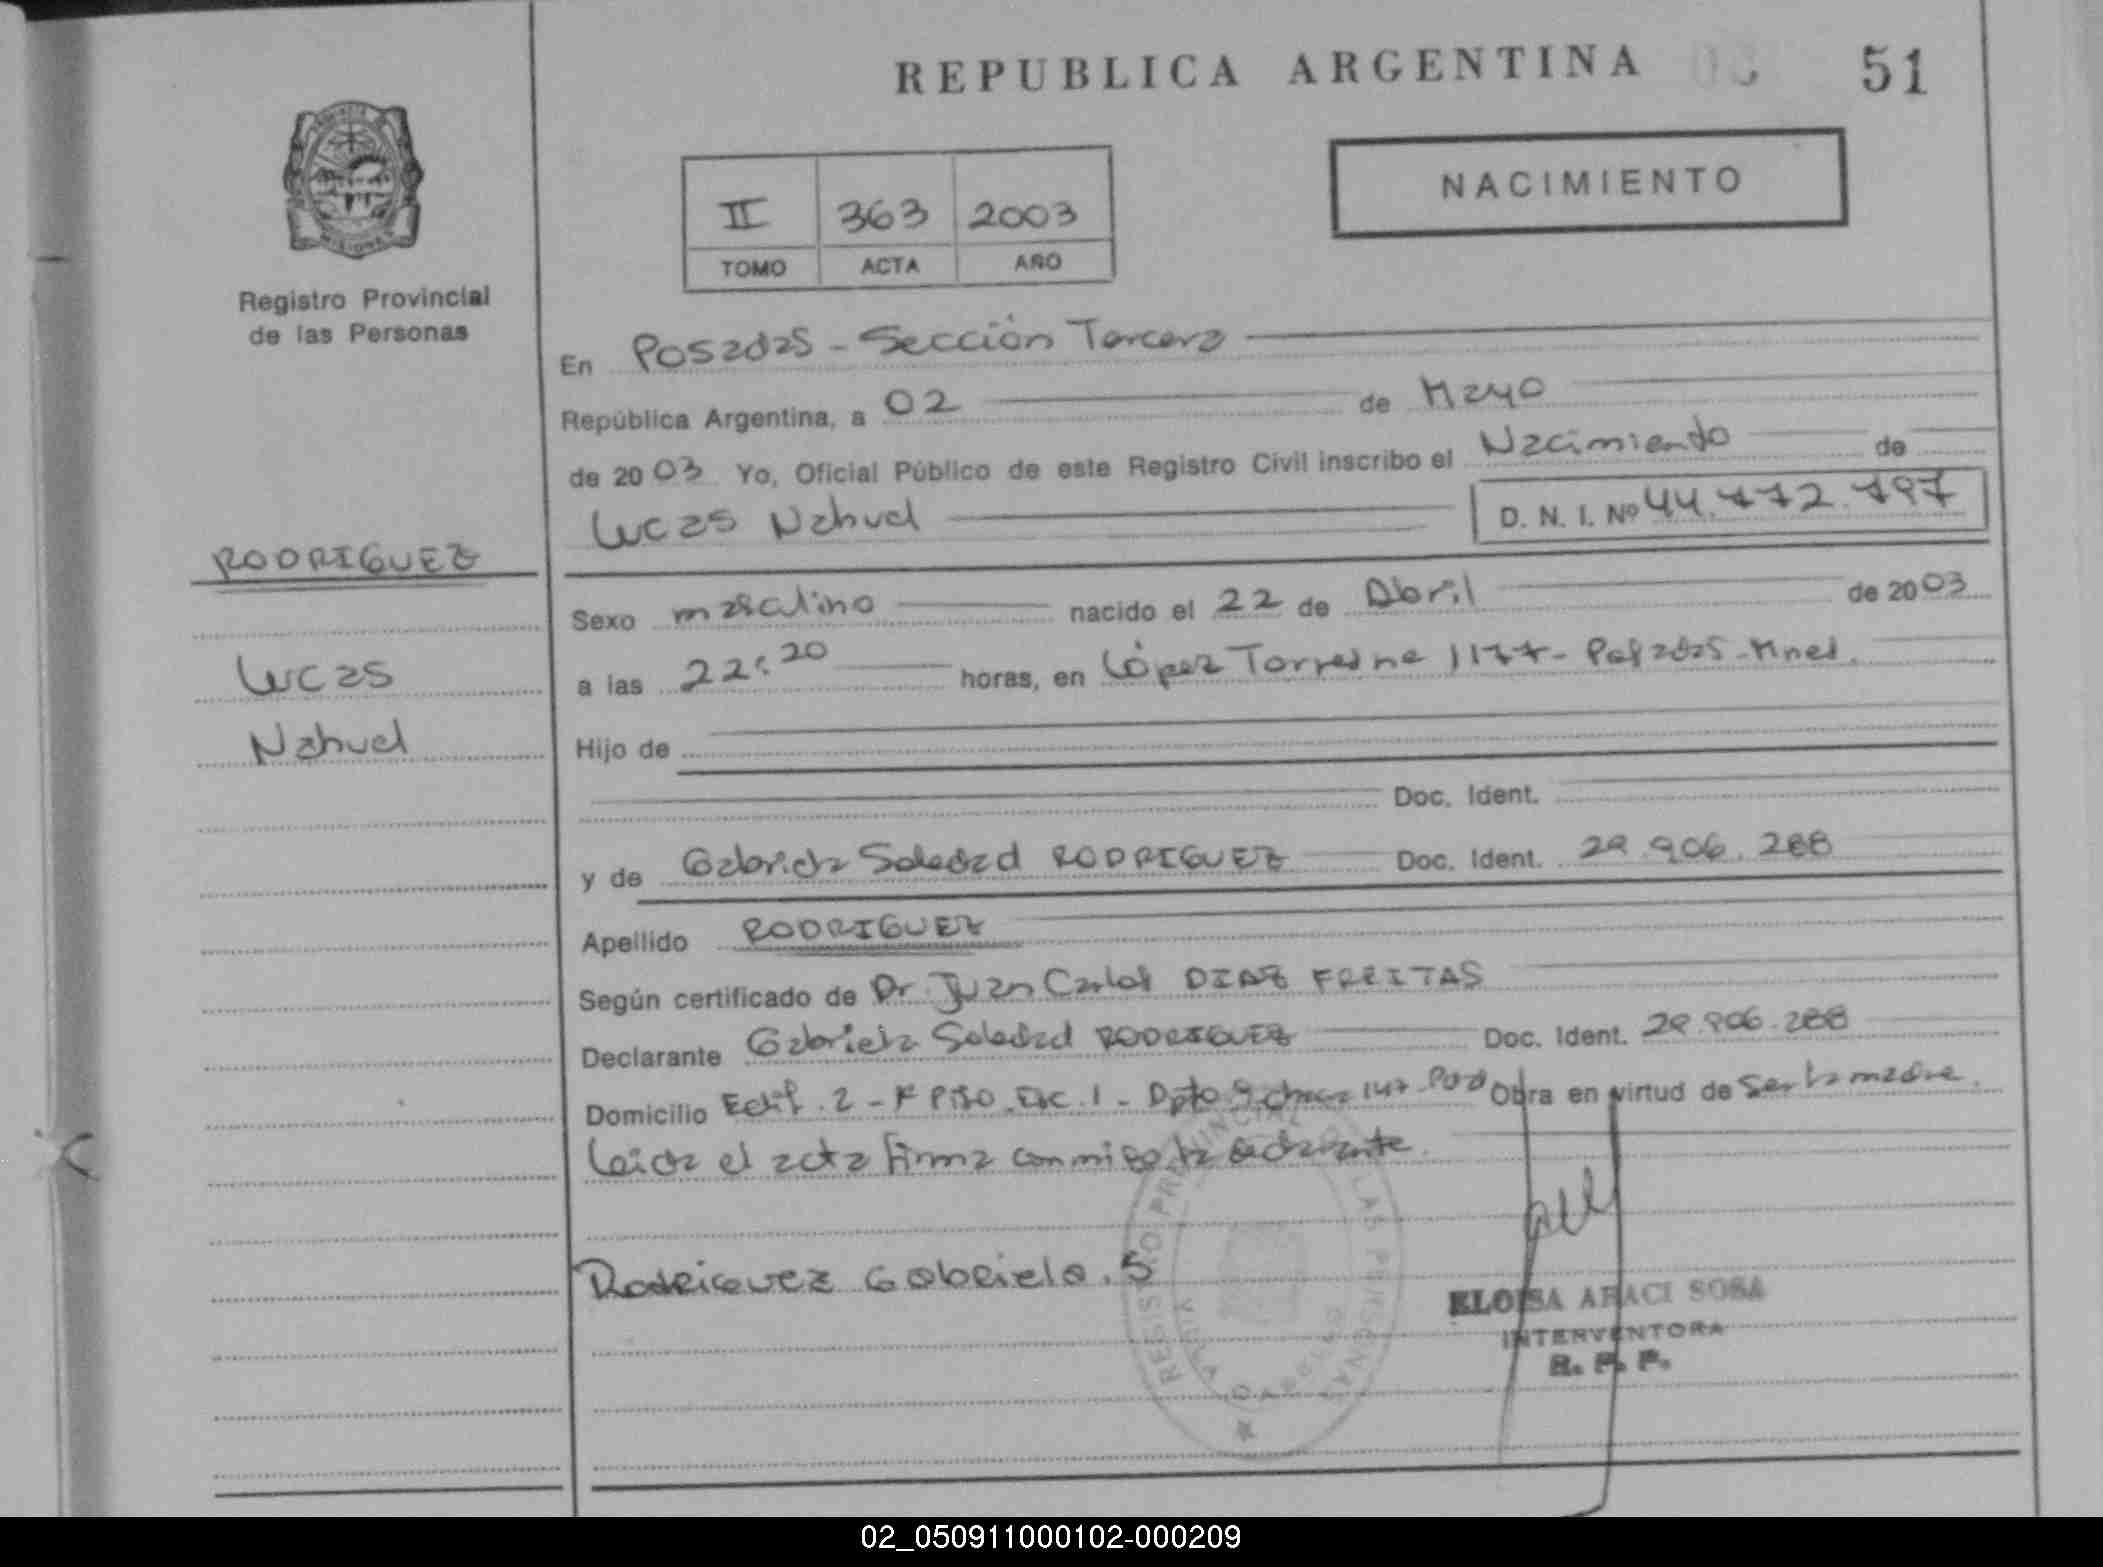 REPUBLICA ARGENTINA 51
NACIMIENTO
II 363 2003
TOMO ACTA AÑO
Registro Provincial
de las Personas
En Posadas - Sección Tercera
República Argentina, a 02 de Mayo
de 2003 Yo, Oficial Público de este Registro Civil inscribo el Nacimiento de
Lucas Nahuel D. N. I. Nº 44.772.797
RODRIGUEZ
Lucas
Nahuel
Sexo masculino nacido el 22 de Abril de 2003
a las 22:20 horas, en López Torres 1177 - Posadas - Mnes.
Hijo de
Doc. Ident.
y de Gabriela Soledad RODRIGUEZ Doc. Ident. 29.906.288
Apellido RODRIGUEZ
Según certificado de Dr. Juan Carlos DIAZ FREITAS
Declarante Gabriela Soledad RODRIGUEZ Doc. Ident. 29.906.288
Domicilio Edif. 2 - Piso. Esc. 1 - Dpto 9 chacra 147 Obra en virtud de ser la madre.
Leida el acta firma conmigo la declarante.
Rodriguez Gabriela. S
REGISTRO PROVINCIAL LAS PERSONAS
POSADAS
ELOISA ARACI SOSA
INTERVENTORA
R. P. P.
02_050911000102-000209